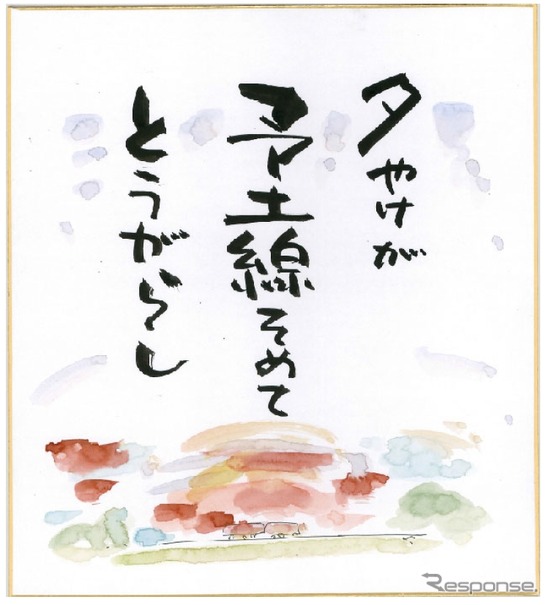 夕やけが
予土線そめて
とうがらし
Response.